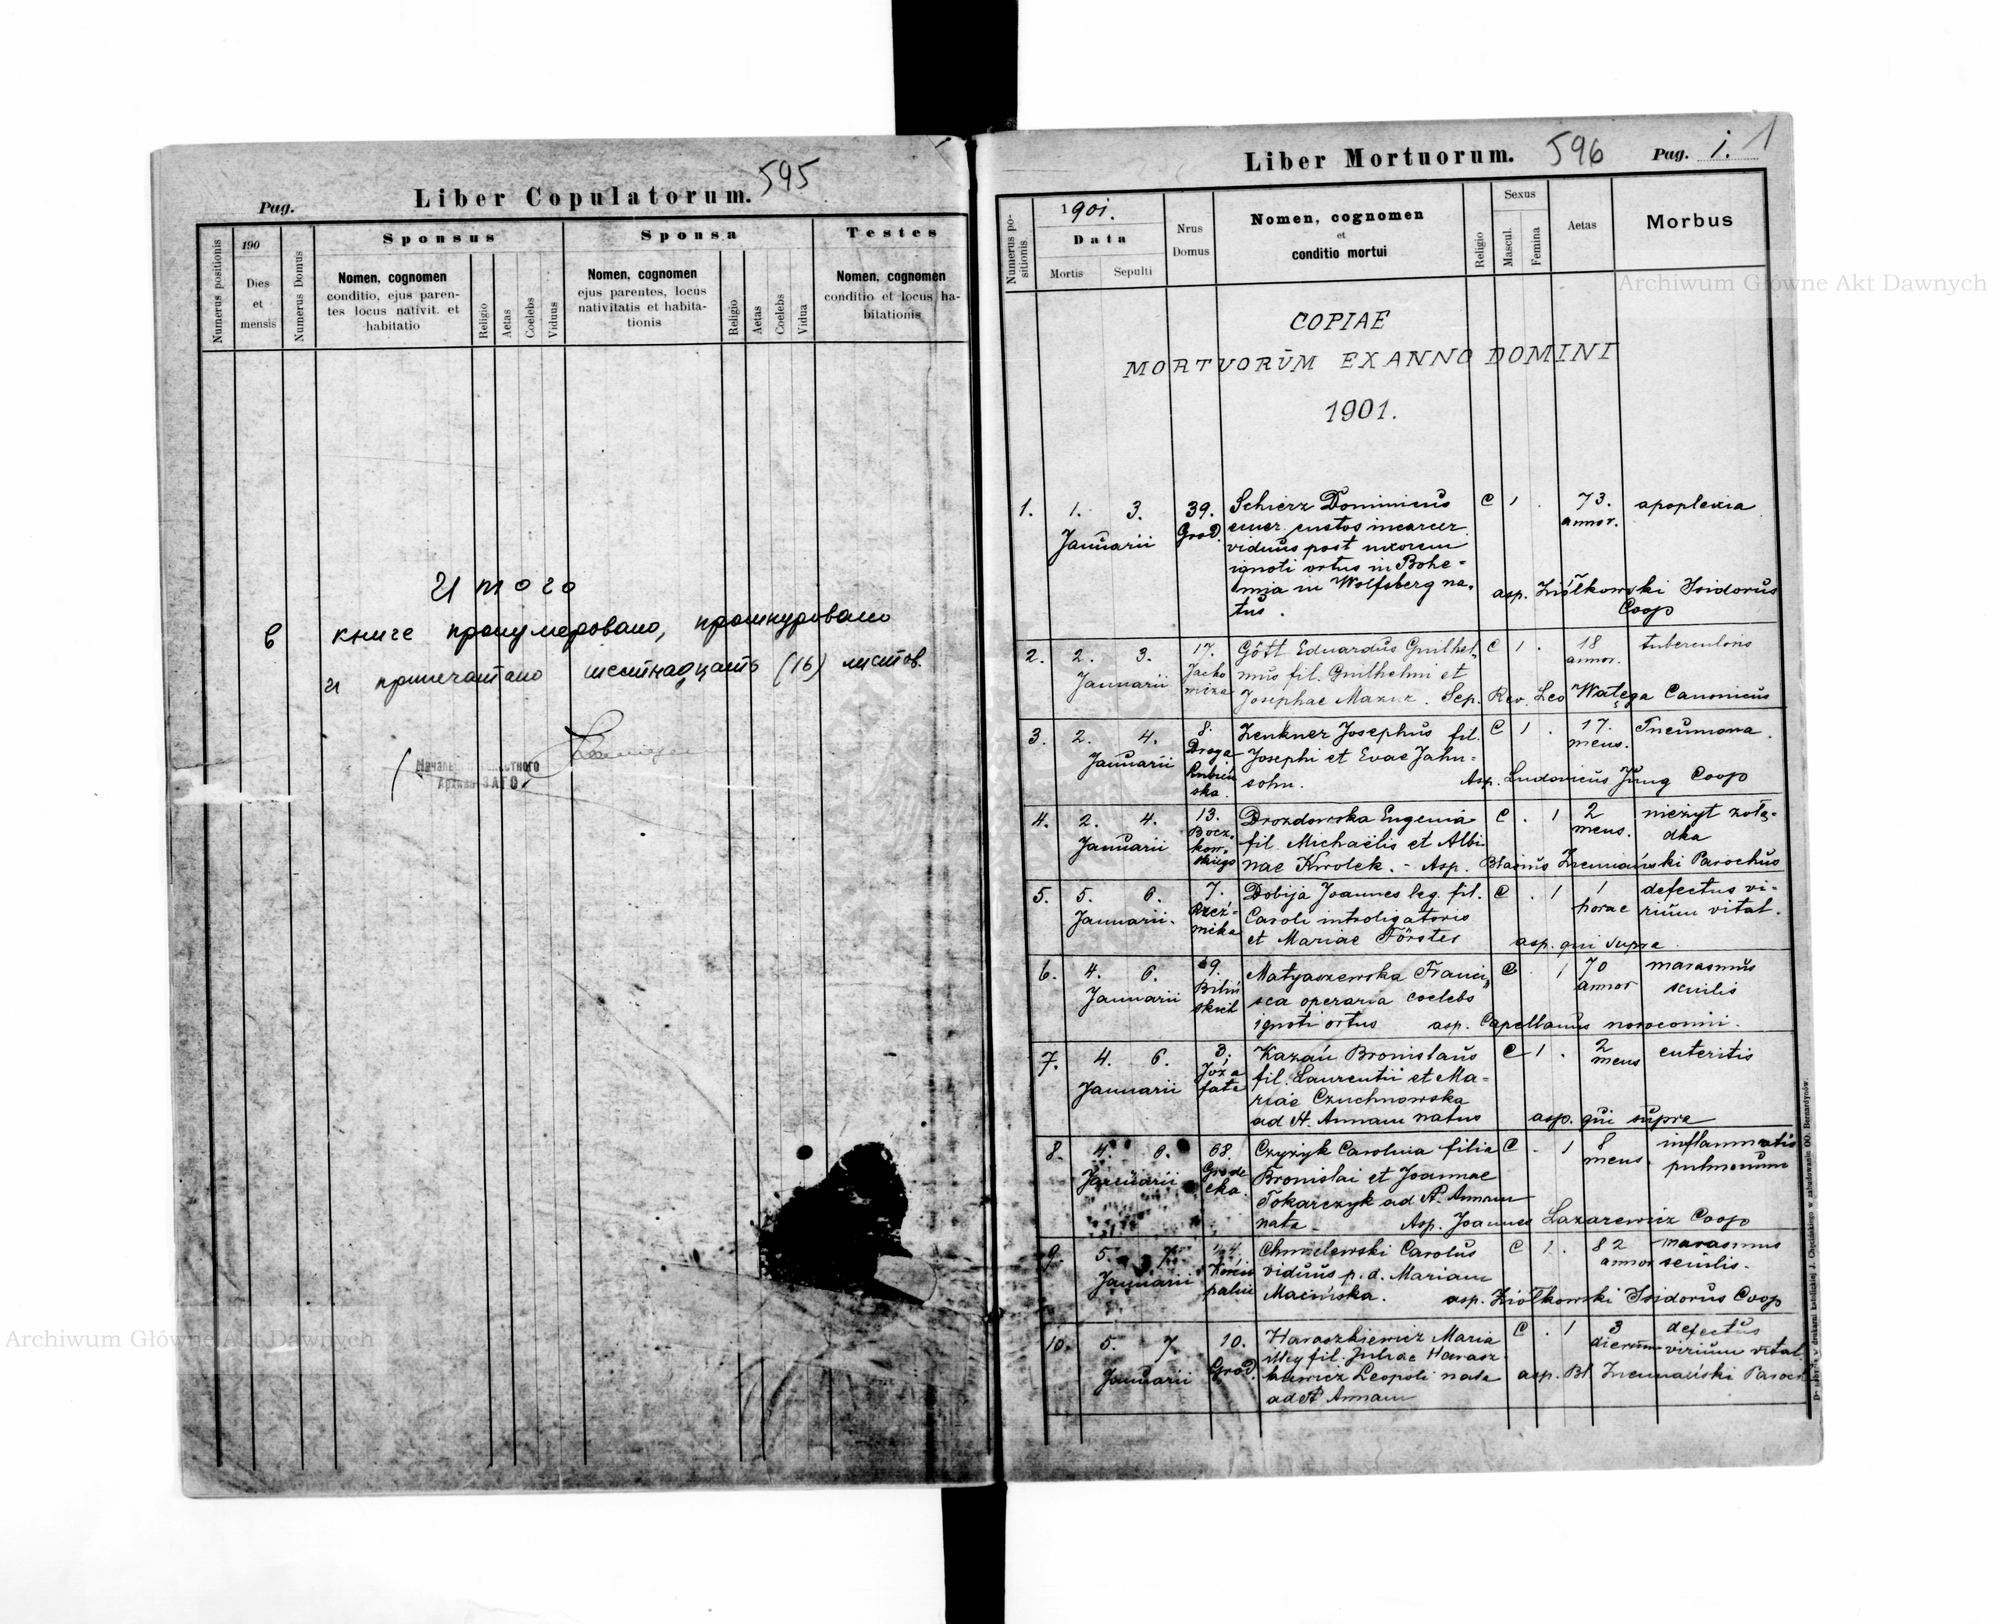 595
Liber Copulatorum.
Pag.
Numerus positionis
190
Dies
et
mensis
Numerus Domus
Sponsus
Nomen, cognomen
conditio, ejus paren-
tes locus nativit. et
habitatio
Religio
Aetas
Coelebs
Viduus
Sponsa
Nomen, cognomen
ejus parentes, locus
nativitatis et habita-
tionis
Religio
Aetas
Coelebs
Vidua
Testes
Nomen, cognomen
conditio et locus ha-
bitationis
Итого
в книге пронумеровано, прошнуровано
и припечатано шестнадцать (16) листов.
Архива ЗАГС
Liber Mortuorum. 596 Pag. 1. 1
Numerus po-
sitionis
1901.
Data
Mortis Sepulti
Nrus
Domus
Nomen, cognomen
et
conditio mortui
Religio
Sexus
Mascul.
Femina
Aetas
Morbus
COPIAE
MORTUORŪM EX ANNO DOMINI
1901.
1. 1. 3. 39. Schierz Dominicus C 1 . 73. apoplexia
Januarii Grod. emer. custos incarcer. annor.
viduus post uxorem
ignoti ortus in Bohe-
mia in Wolfsberg na-
tus. asp. Ziółkowski Isidorus
Coop
2. 2. 3. 17. Gött Eduardus Guilhel- C 1 . 18 tuberculosis
Januarii Jacho mus fil. Guilhelmi et annor.
micza Josephae Mazur. Sep. Rev. Leo Wałęga Canonicus
3. 2. 4. 8. Zenkner Josephus fil. C 1 . 17. Pneumonia.
Januarii Droga Josephi et Evae Jahn- mens.
ska. sohn. Asp. Ludovicus Jung Coop
4. 2. 4. 13. Drozdowska Eugenia C . 1 2 nieżyt żołą-
Januarii Bocz- fil. Michaëlis et Albi mens. dka
kow-
skiego nae Krolek. - Asp. Blasius Parochus
5. 5. 6. 7. Dobija Joannes leg. fil. C . 1 1 defectus vi-
Januarii. Rzeź- Caroli introligatoris horae rium vital.
nika et Mariae Förster asp. qui supra
6. 4. 6. 9. Matyaszewska Franci- C . 1 70 marasmus
Januarii Biliń sca operaria coelebs annor senilis
skich ignoti ortus asp. Capellanus nosocomii.
7. 4. 6. 3. Kazań Bronislaus C 1 . 2 enteritis
Januarii Józa fil. Laurentii et Ma- mens
fata riae Czuchnowska
ad St. Annam natus asp. qui supra
8. 4. 6. 68. Czyzyk Carolina filia C . 1 8 inflammatio
Januarii Grode Bronislai et Joannae mens. pulmonum
cka. Tokarczyk ad St. Annam
nata Asp. Joannes Lazarewicz Coop
9. 5. 7. Chmielewski Carolus C 1 . 82 marasmus
Januarii viduus p. d. Mariam annor senilis.
palni asp. Ziółkowski Isidorus Coop
10. 5. 7. 10. Haraszkiewicz Maria C . 1 3 defectus
Januarii Grod. illeg fil. Juliae Harasz- dierum virium vital.
kiewicz Leopoli nata asp. Bł. Paroch
ad St Annam
Archiwum Główne Akt Dawnych
Archiwum Główne Akt Dawnych